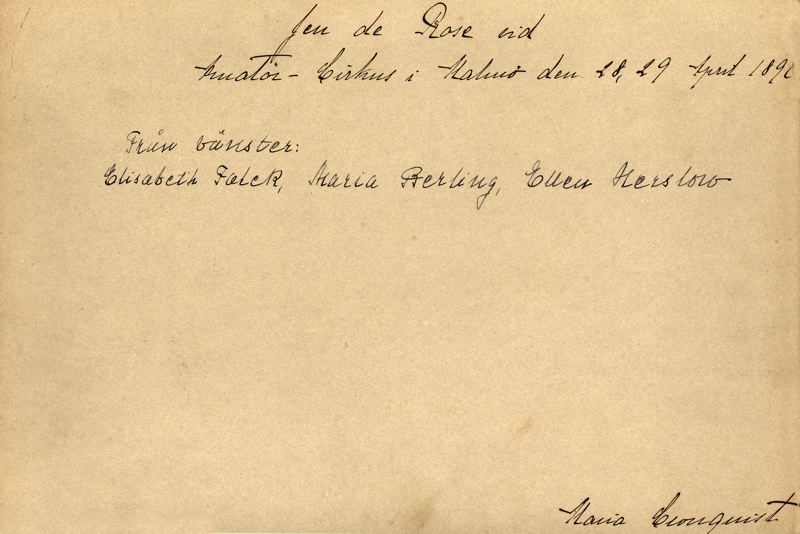 Jeu de Rose vid
Amatör-Cirkus i Malmö den 28, 29 April 189
Från vänster:
Elisabeth Falck, Maria Berling, Ellen Herslow
Maria Cronquist